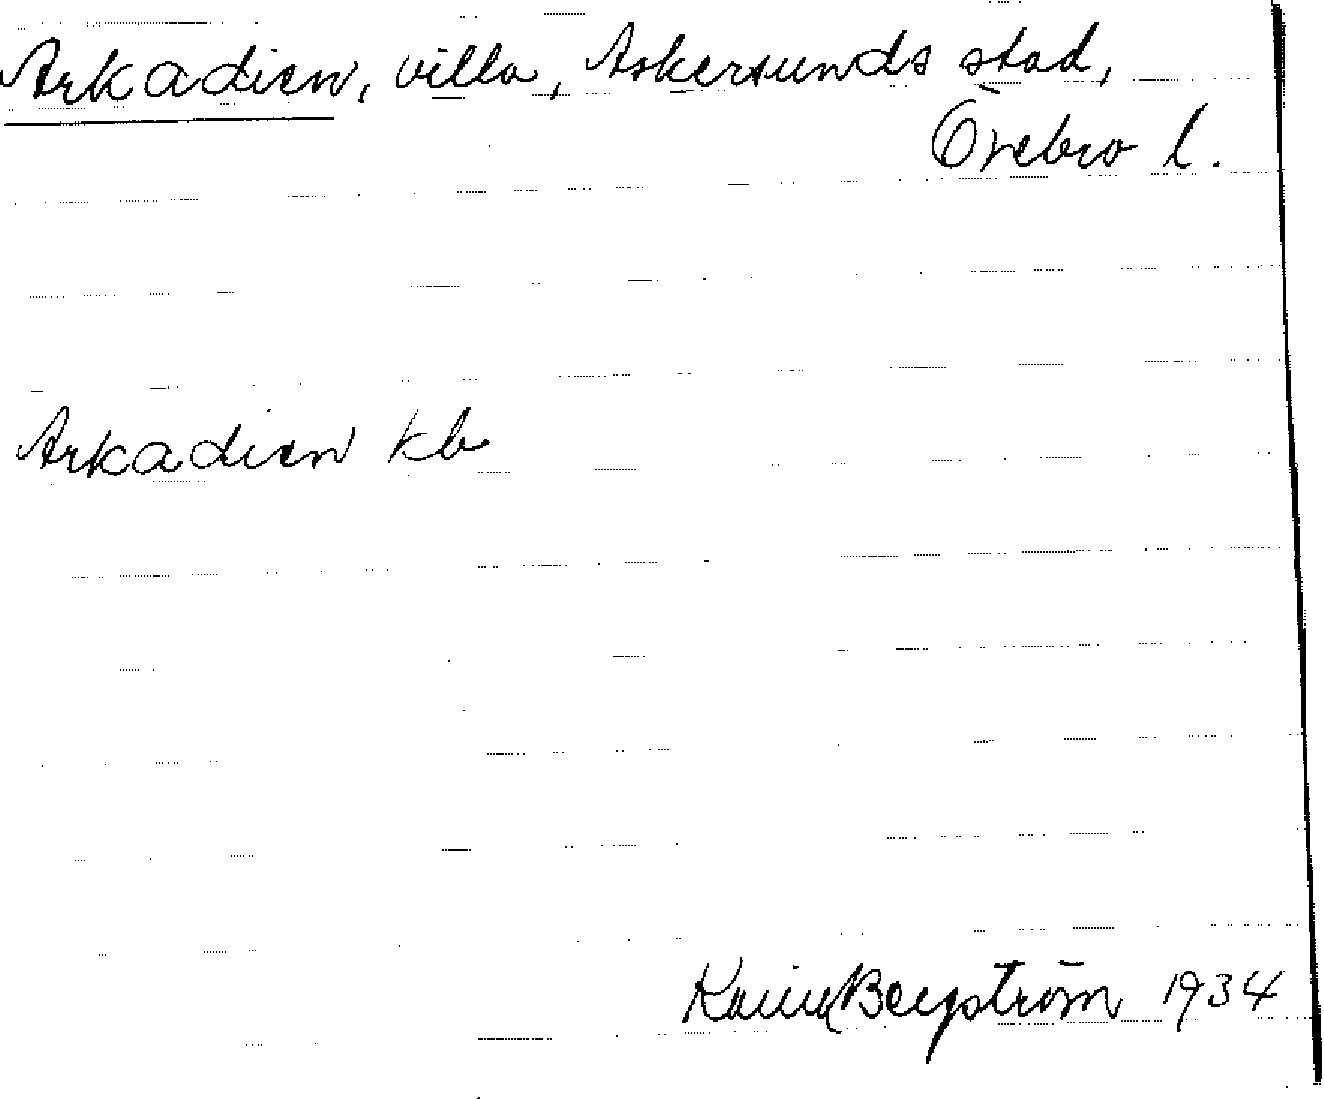 Arkadien, villa, Askersunds stad,
Örebro l.
Arkadien kb
Karin Bergström 1934